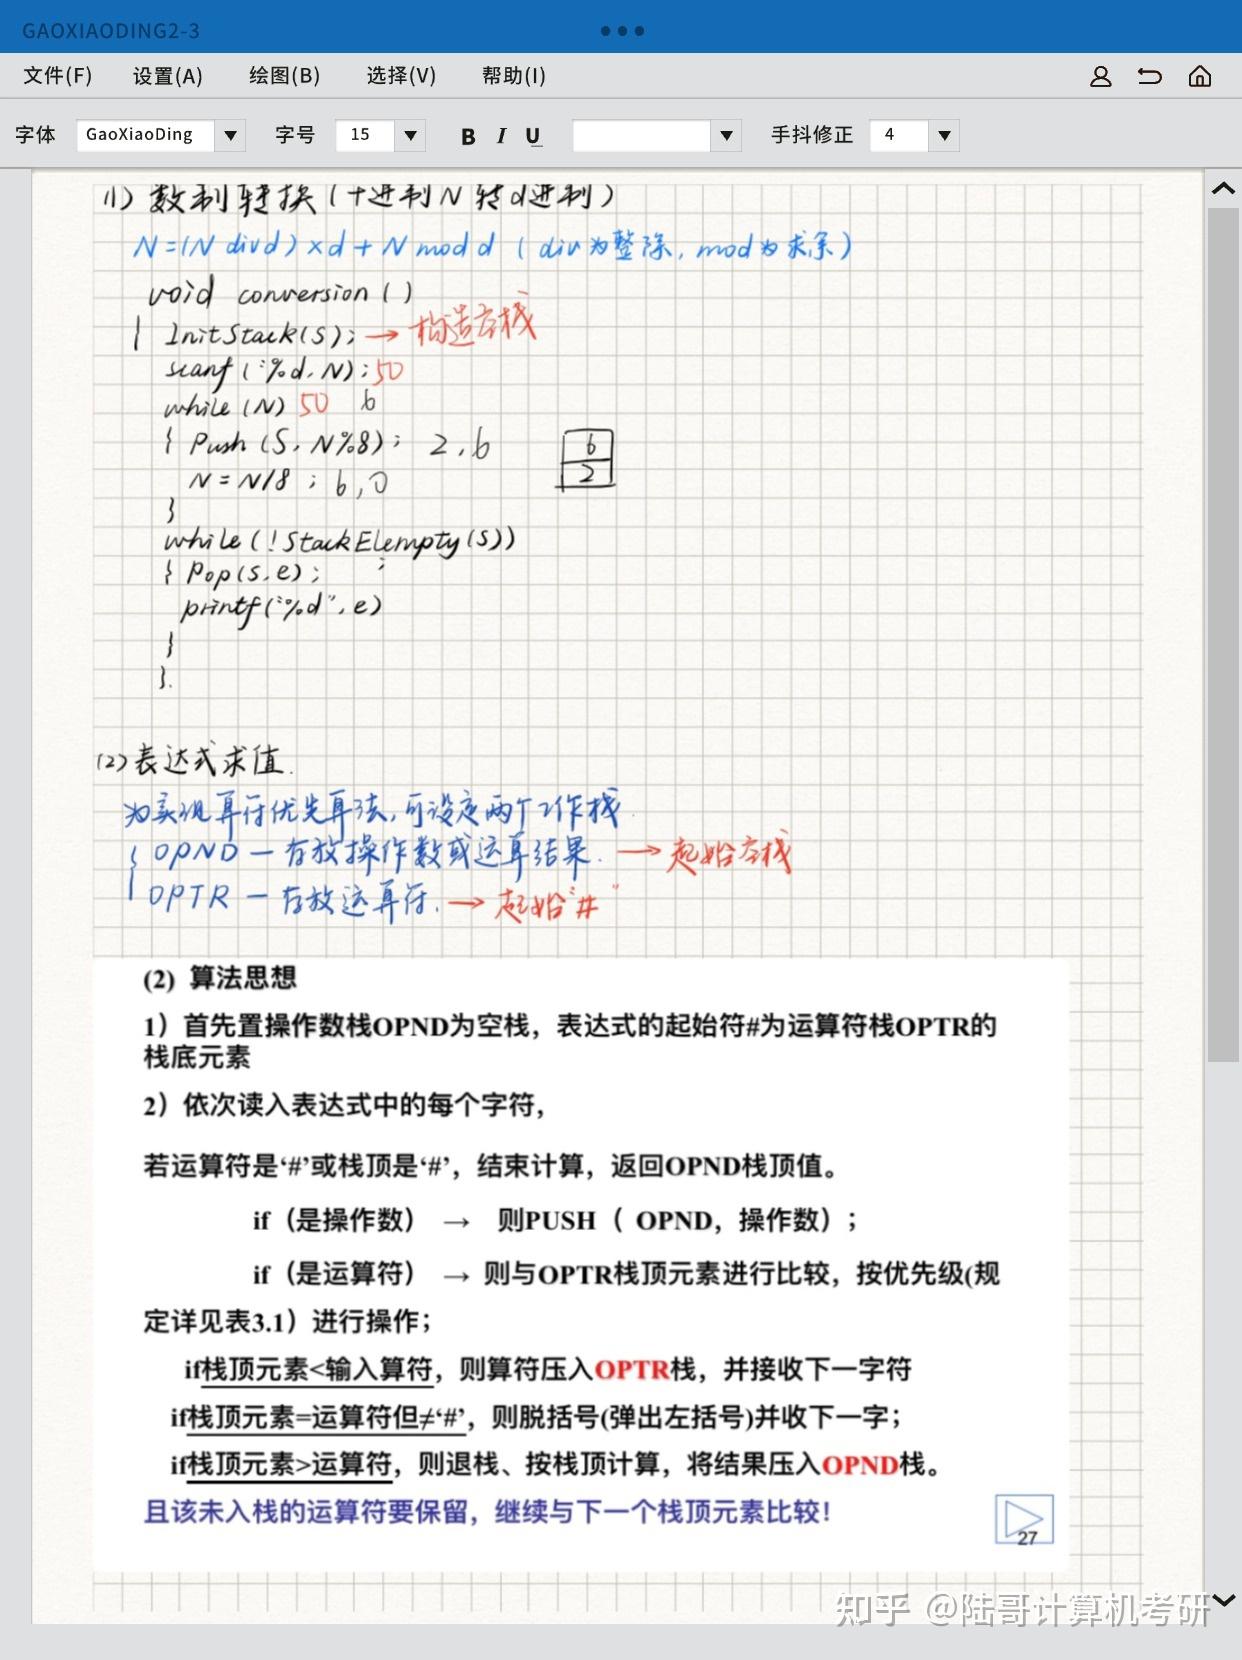 GAOXIAODING2-3
文件(F) 设置(A) 绘图(B) 选择(V) 帮助(I)
字体 GaoXiaoDing 字号 15 B I U 手抖修正 4
(1) 数制转换(十进制N转d进制)
N=(N div d)×d+N mod d (div为整除, mod为求余)
void conversion()
{ InitStack(S); → 构造空栈
scanf("%d, N); 50
while(N) 50 6
{ Push(S, N%8); 2,6
6
N=N/8; 6,0
2
}
while(!StackElempty(S))
{ Pop(s,e);
printf("%d", e)
}
}.
(2) 表达式求值.
为实现算符优先算法,可设定两个工作栈.
{ OPND — 存放操作数或运算结果. → 起始空栈
OPTR — 存放运算符. → 起始"#"
(2) 算法思想
1）首先置操作数栈OPND为空栈，表达式的起始符#为运算符栈OPTR的
栈底元素
2）依次读入表达式中的每个字符，
若运算符是‘#’或栈顶是‘#’，结束计算，返回OPND栈顶值。
if（是操作数） → 则PUSH（ OPND，操作数）；
if（是运算符） → 则与OPTR栈顶元素进行比较，按优先级(规
定详见表3.1）进行操作；
if栈顶元素<输入算符，则算符压入OPTR栈，并接收下一字符
if栈顶元素=运算符但≠‘#’，则脱括号(弹出左括号)并收下一字；
if栈顶元素>运算符，则退栈、按栈顶计算，将结果压入OPND栈。
且该未入栈的运算符要保留，继续与下一个栈顶元素比较！
27
知乎 @陆哥计算机考研